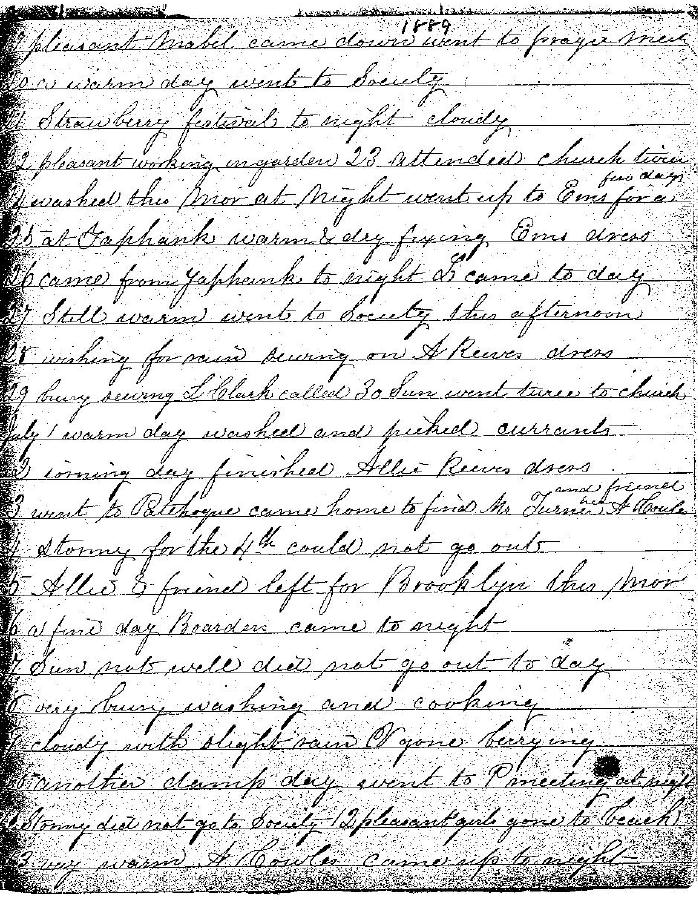 1889
9 pleasant Mabel came down went to prayer meet
20 a warm day went to Society
21 Strawberry festival to night cloudy
22 pleasant working in garden 23 Attended church twice
24 washed this Mor at Night went up to Ems for a few days
25 at Yaphank warm & dry fixing Ems dress
26 came from Yaphank to night L came to day
27 Still warm went to Society this afternoon
28 wishing for rain sewing on A Reeves dress
29 busy sewing L Clark called 30 Sun went twice to church
July 1 warm day washed and picked currants
2 ironing day finished Allie Reeves dress
3 went to Patchogue came home to find Mr Turner and friend A Howles
4 stormy for the 4th could not go out
5 Allie & friend left for Brooklyn this Mor
6 a fine day Boarders came to night
7 Sun not well did not go out to day
8 very busy washing and cooking
9 cloudy with slight rain N gone berrying
10 another damp day went to P meeting at night
11 Stormy did not go to Society 12 pleasant girls gone to Beach
13 very warm A Howles came up to night